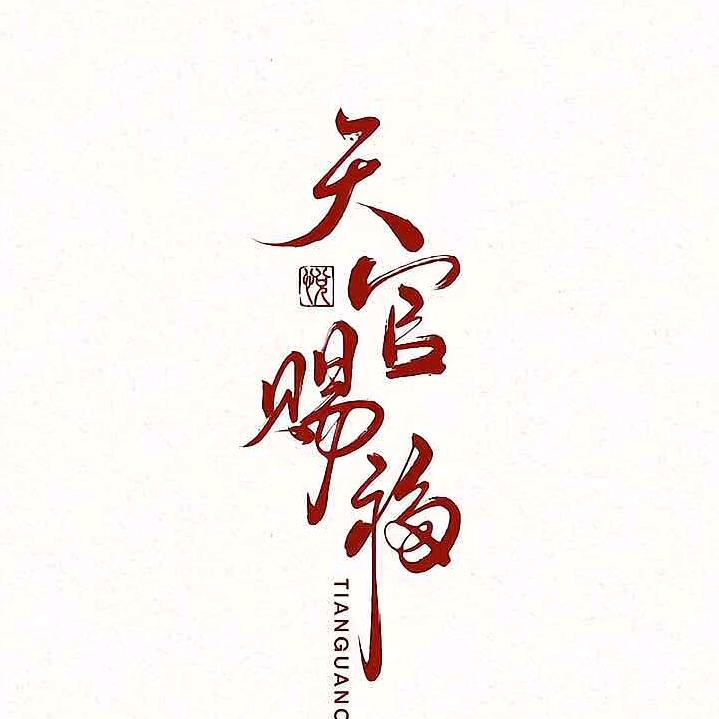 天官赐福
悦
TIANGUANC